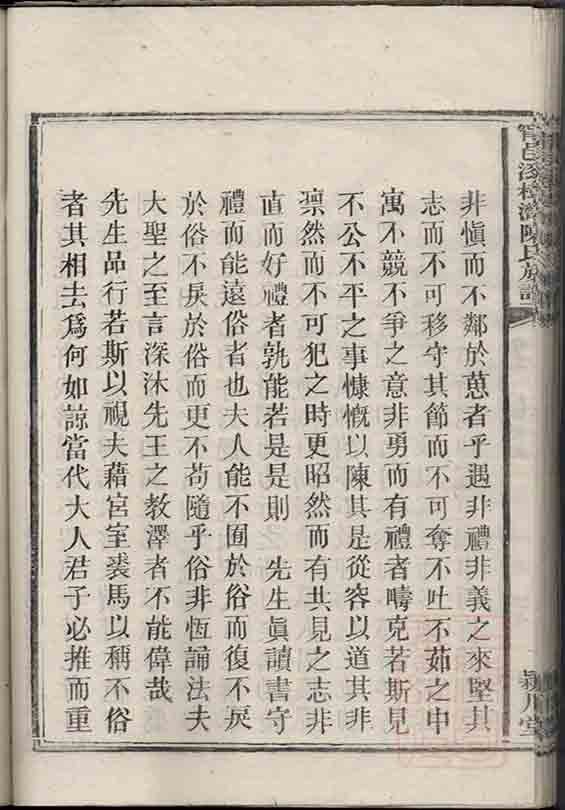 非愼而不鄰於葸者乎遇非禮非義之來堅其
志而不可移守其節而不可奪不吐不茹之中
寓不競不爭之意非勇而有禮者疇克若斯見
不公不平之事慷慨以陳其是從容以道其非
凛然而不可犯之時更昭然而有共見之志非
直而好禮者孰能若是是則　先生眞讀書守
禮而能遠俗者也夫人能不囿於俗而復不戾
於俗不戾於俗而更不苟隨乎俗非恆誦法夫
大聖之至言深沐先王之教澤者不能偉哉
先生品行若斯以視夫藉宮室裘馬以稱不俗
者其相去爲何如諒當代大人君子必推而重
陳氏族譜
潁川堂